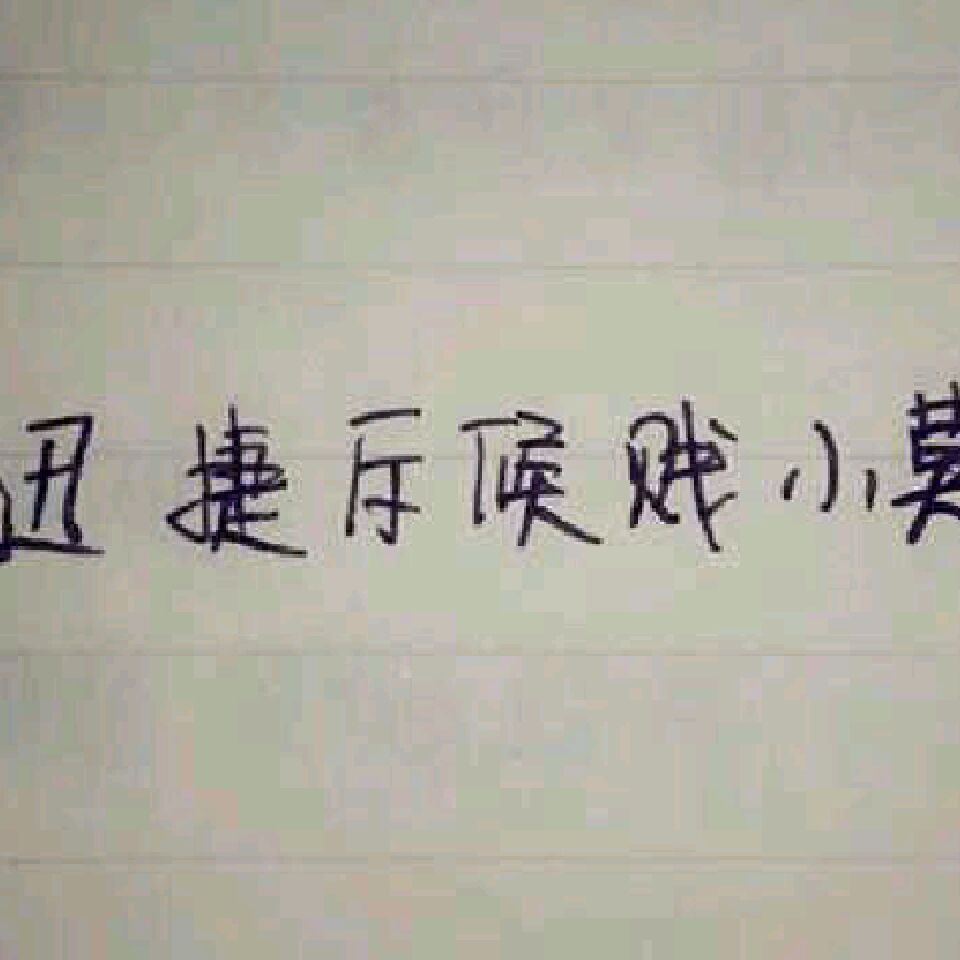 迅捷斥候贱小莫